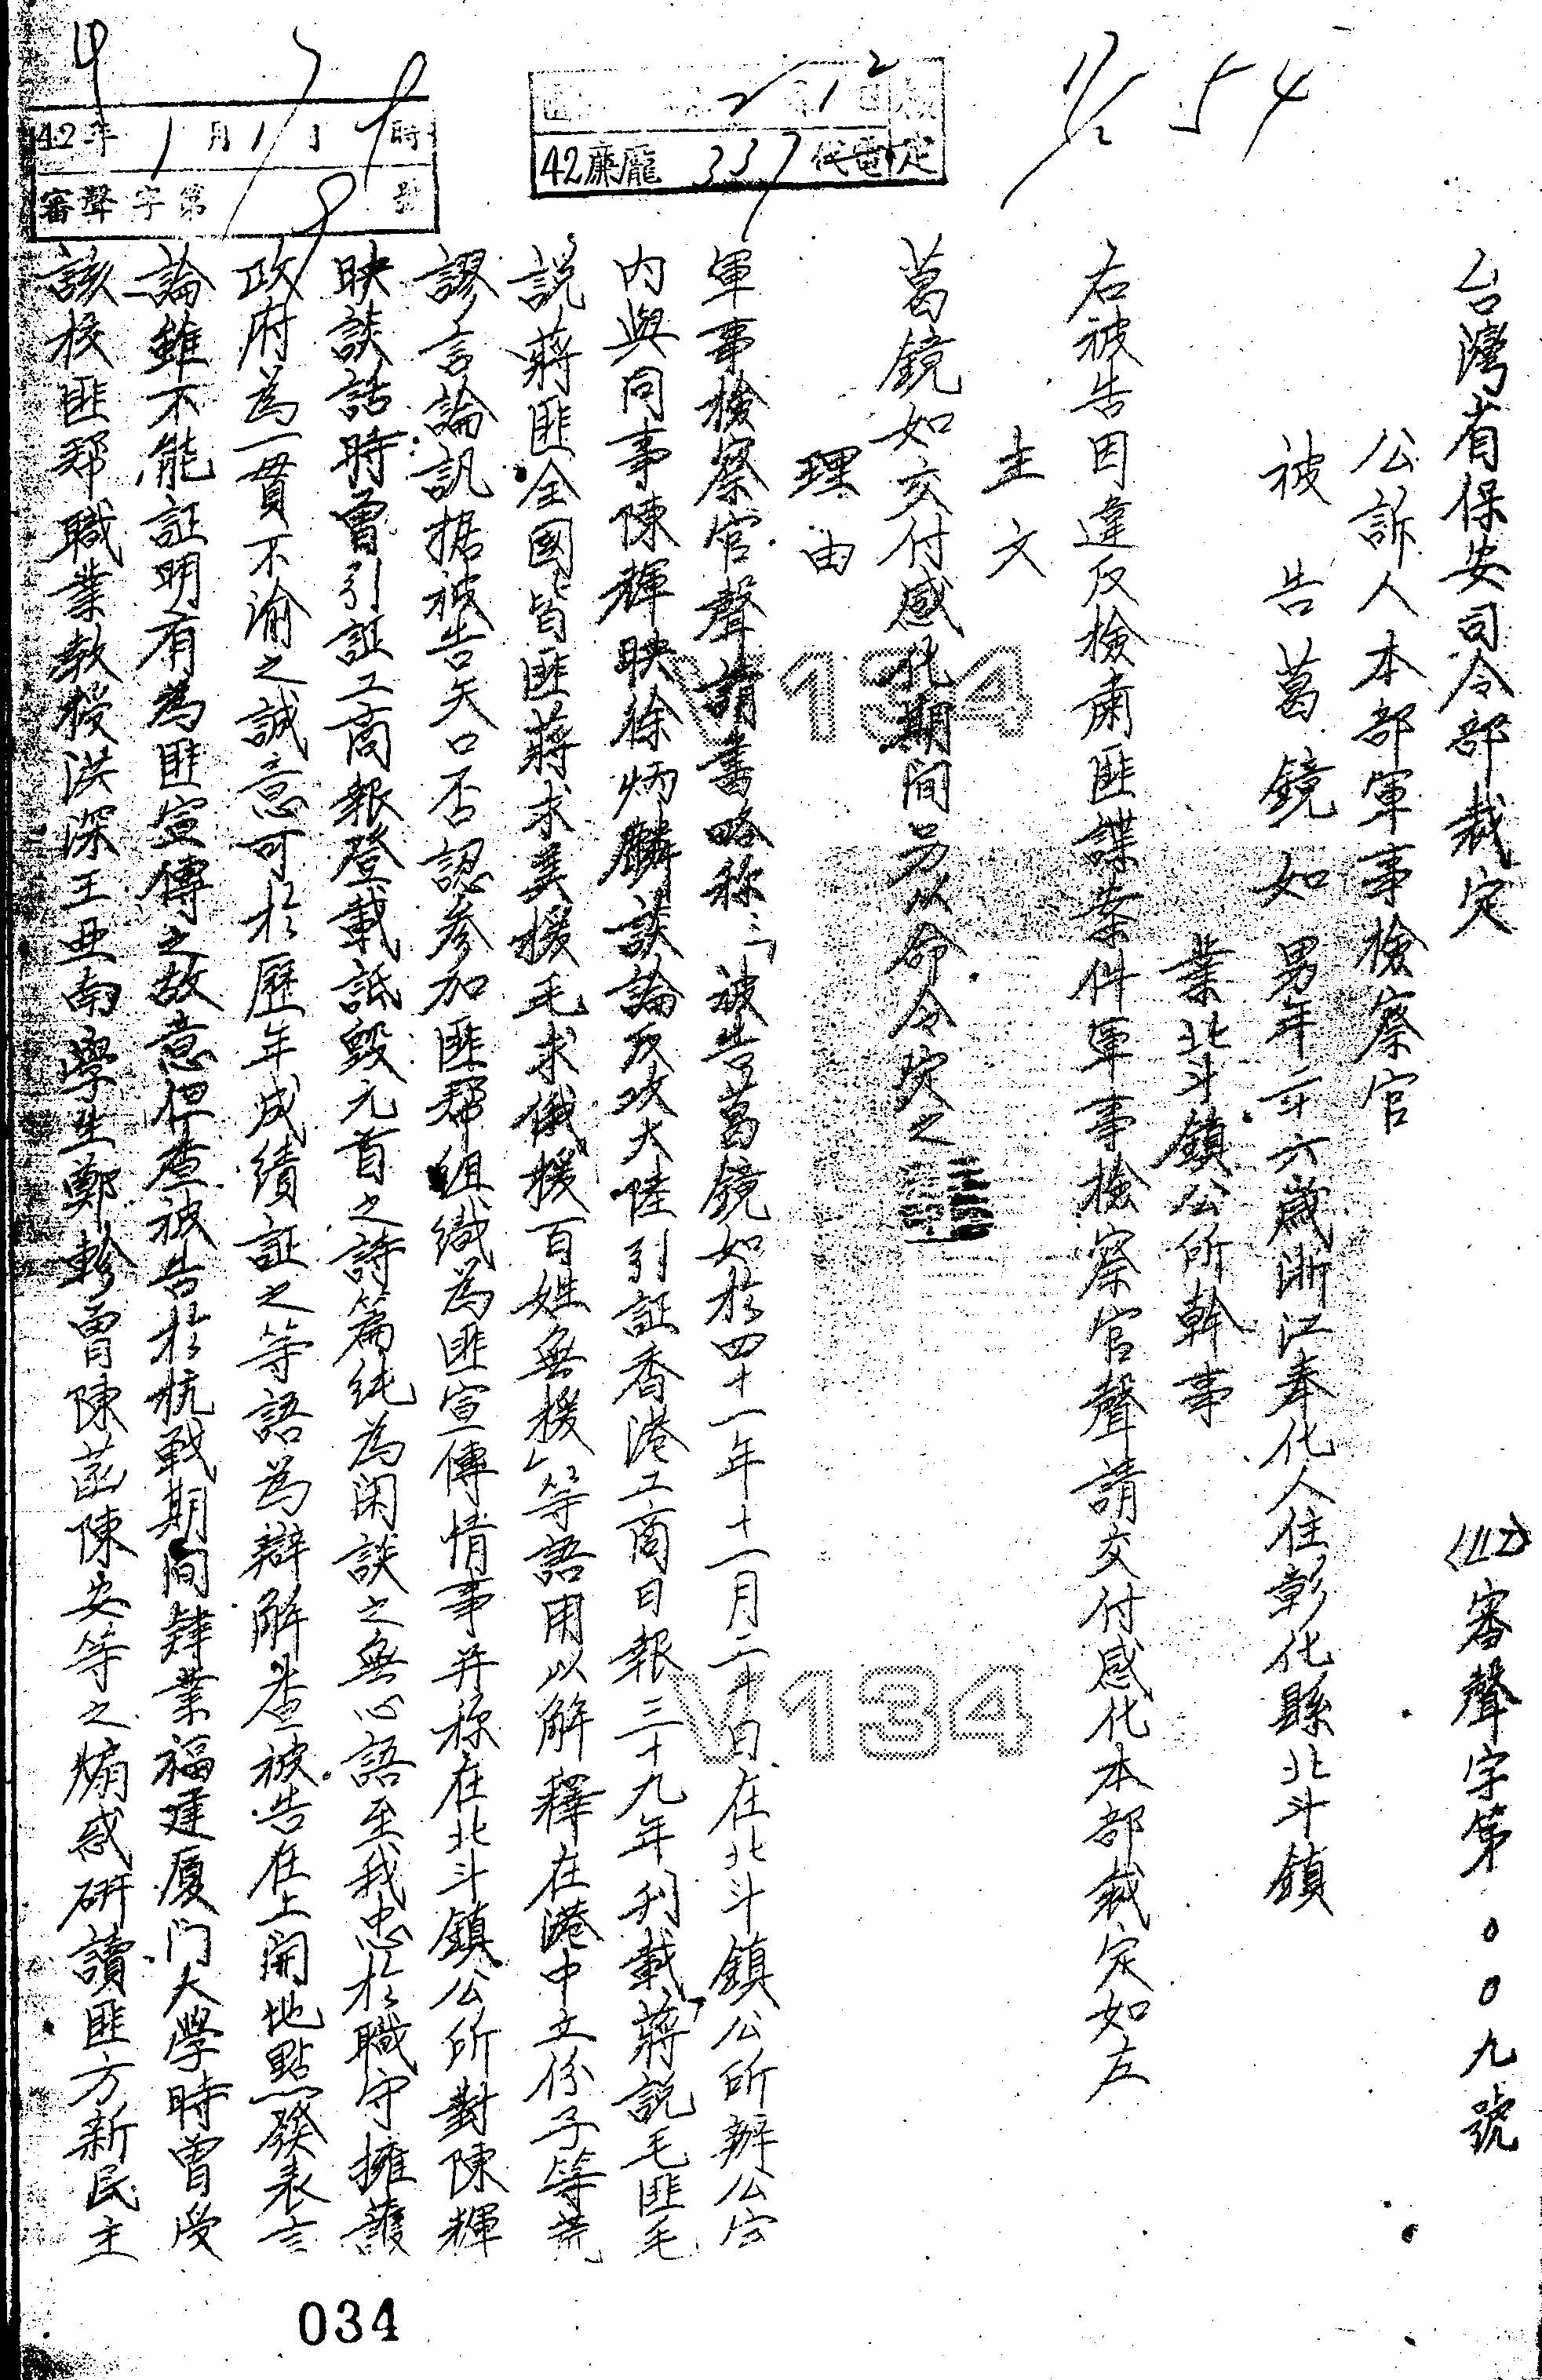 54
42年1月17日9時
審聲字第9號
42廉龐337代電核定
台灣省保安司令部裁定
審聲字第〇〇九號
公訴人本部軍事檢察官
被告葛鏡如男年二十六歲浙江奉化人住彰化縣北斗鎮
業北斗鎮公所幹事
右被告因違反檢肅匪諜案件軍事檢察官聲請交付感化本部裁定如左
主文
葛鏡如交付感化期間另以命令定之
理由
軍事檢察官聲請書略称：「被告葛鏡如於四十一年十一月二十日在北斗鎮公所辦公室
內與同事陳輝映徐炳麟談論反攻大陸引証香港工商日報三十九年刊載「蔣說毛匪毛
說蔣匪全國皆匪蔣求美援毛求俄援百姓無援」等語用以解釋在港中立份子等荒
謬言論訊据被告矢口否認參加匪幫組織為匪宣傳情事并称在北斗鎮公所對陳輝
映談話時曾引証工商報登載詆毀元首之詩篇純為闲談之無心語至我忠於職守擁護
政府為一貫不渝之誠意可於歷年成績証之等語為辯解查被告在上開地點發表言
論雖不能証明有為匪宣傳之故意但查被告於抗戰期間肄業福建厦门大學時曾受
該校匪幫職業教授洪深王亞南學生鄭軫曾陳菡陳安等之煽惑研讀匪方新民主
V134
V134
034